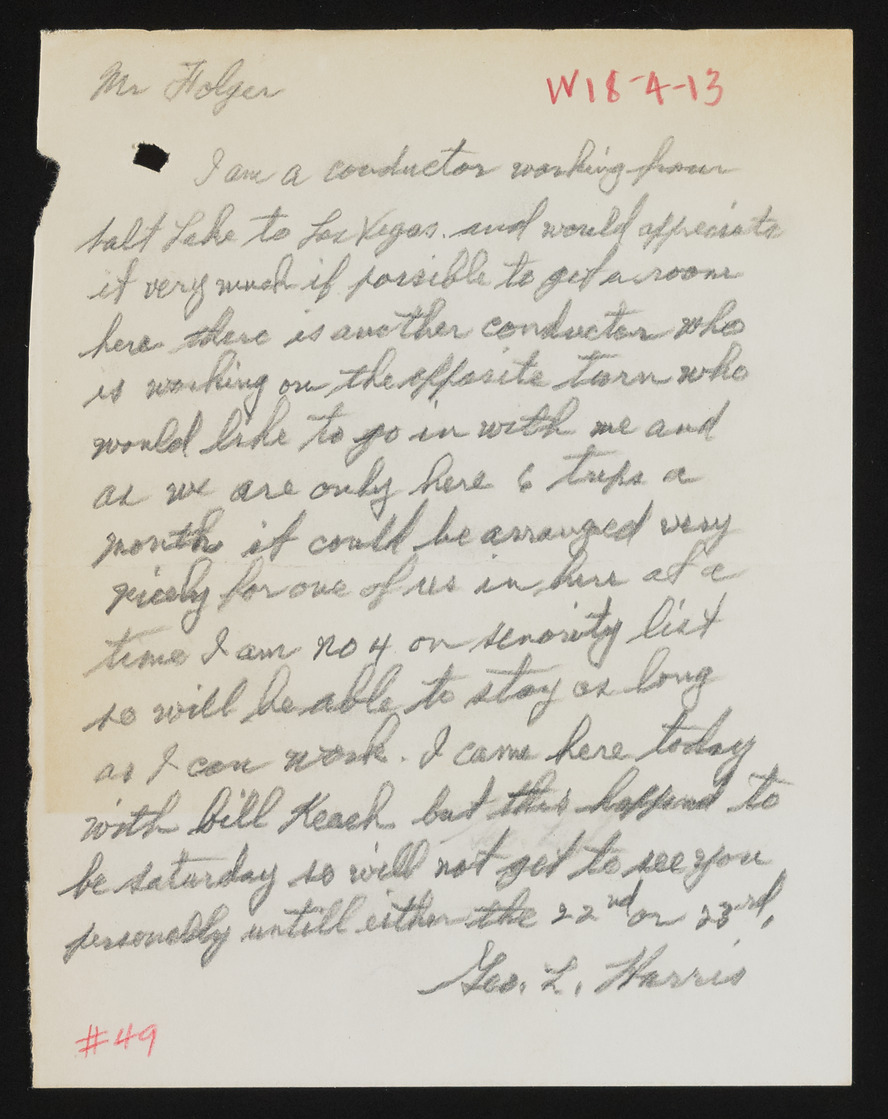 Mr Folger
W18-4-13
I am a conductor working from
Salt Lake to Las Vegas. and would appreciate
it very much if possible to get a room
here there is another conductor who
is working on the opposite turn who
would like to go in with me and
as we are only here 6 trips a
month it could be arranged very
nicely for one of us in here at a
time I am no 4 on senority list
so will be able to stay as long
as I can work. I came here today
with bill Keach but this happend to
be saturday so will not get to see you
personally untill either the 22nd or 23rd.
Geo. L. Harris
#49